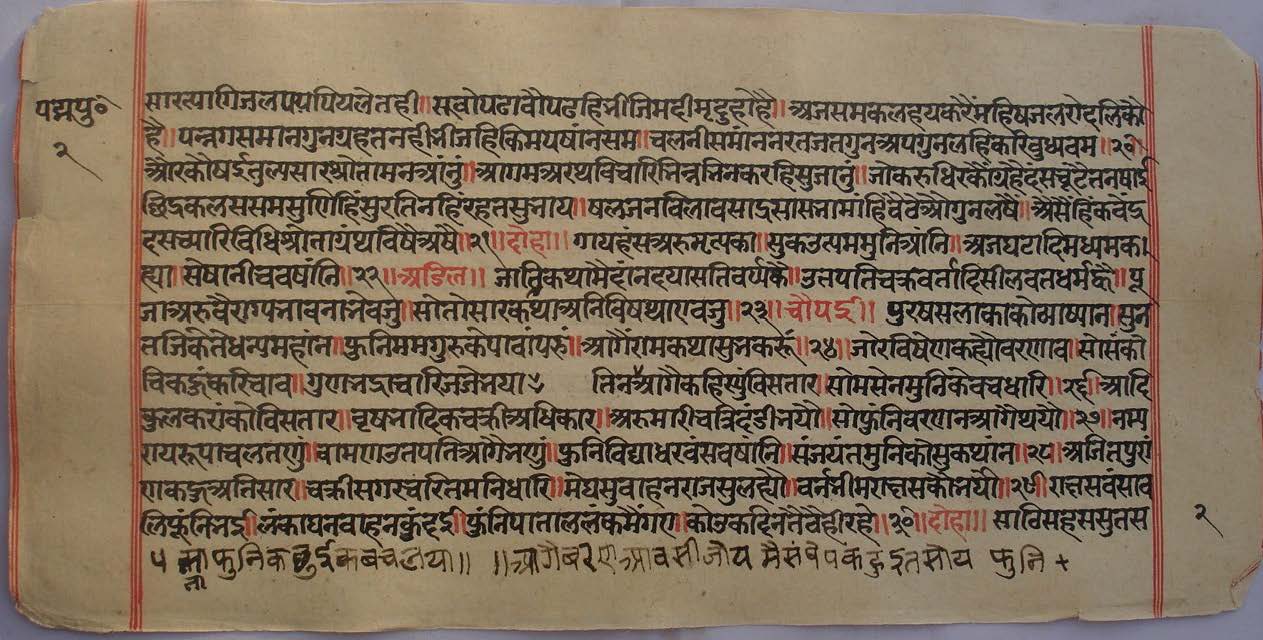 पद्मपु०
२
सारत्यागिजलपयपियलेतही॥सवोपढावौपढहिभीजिमदीमृदुहोहै॥अजसमकलहयकरैमहिषजलरोदलिकौ
है॥पन्नगसमानगुनग्रहतनहीभीजहिकिमयषांनसम॥चलनीसमांननरतजतगुनअपगुनलहिकरिवुधवम॥२०॥
औरकौषईतुल्यसारथोतामनआंनुं॥आगमअरथविचारिभिन्नभिनकरहिसुजांनुं॥जोकरुधिरकौग्रहैदंसचूटैतनषाई
छिद्रकलससमसुणिहिंसुरतिनहिरहतसुभाय॥षलजनविलावसाद्रसासभामांहिवैवेऔगुनलषै॥असेहिकवेद्र
दसच्यारिविधिश्रोताग्रंथविषैअषै॥२१॥दोहा॥गायहंसअरुमृत्यका॥सुकउत्यममुनिआंनि॥अजघटादिमध्यमक
ह्या॥सेषानीचवषांनि॥२२॥अडिल॥जातिकथामैदांनदयासतिवर्ण्यके॥उतपतिचक्रवर्तादिसीलवतधर्मके॥पू
जाअरुवैराग्यभावनाभेवजु॥सोतोसारकथाअनिविषथारावजु॥२३॥चौपई॥पुरषसलाकाकोव्याष्यान॥सुन
तजिकेतेधन्यमहांन॥फुनिममगुरुकेपावांपरुं॥आगैरांमकथासुभकरूं॥२४॥जोरविषेणकह्योवरणाव॥सोसंको
चिकहुंकरिचाव॥गुणभद्राचारिजजेभया तिनआगैकहिस्युंविसतार॥सोमसेनमुनिकेवचधारि॥२६॥आदि
कुलकरांकोविसतार॥वृषभादिकचक्रीअधिकार॥अरुमारीचत्रिदंडीभयौ॥सोफुनिवरणनआगैथयौ॥२७॥नम्य
रायरूपाचलतणुं॥वामणउतपतिआगैभणुं॥फुनिविद्याधरवंसवषांनि॥संजयंतमुनिकोसुकथांन॥२८॥अजितपुरां
णकहुंअतिसार॥चक्रीसगरचरितमनिधारि॥मेघसुवाहनराजसुलह्यौ॥वर्ननभीमराक्षसकौभयौ॥२९॥राक्षसवंसाव
लिफुंनिभई॥लंकाघनवाहनकुंदई॥फुंनिपाताललंकमैंगए॥कोउकदिनतेवैहीरहे॥३०॥दोहा॥साविसहससुतस
२
५ ताफुनिक वचभया॥ ॥आगैवरणावसीजोय मैसंषेपकहुइतसोय फुनि +